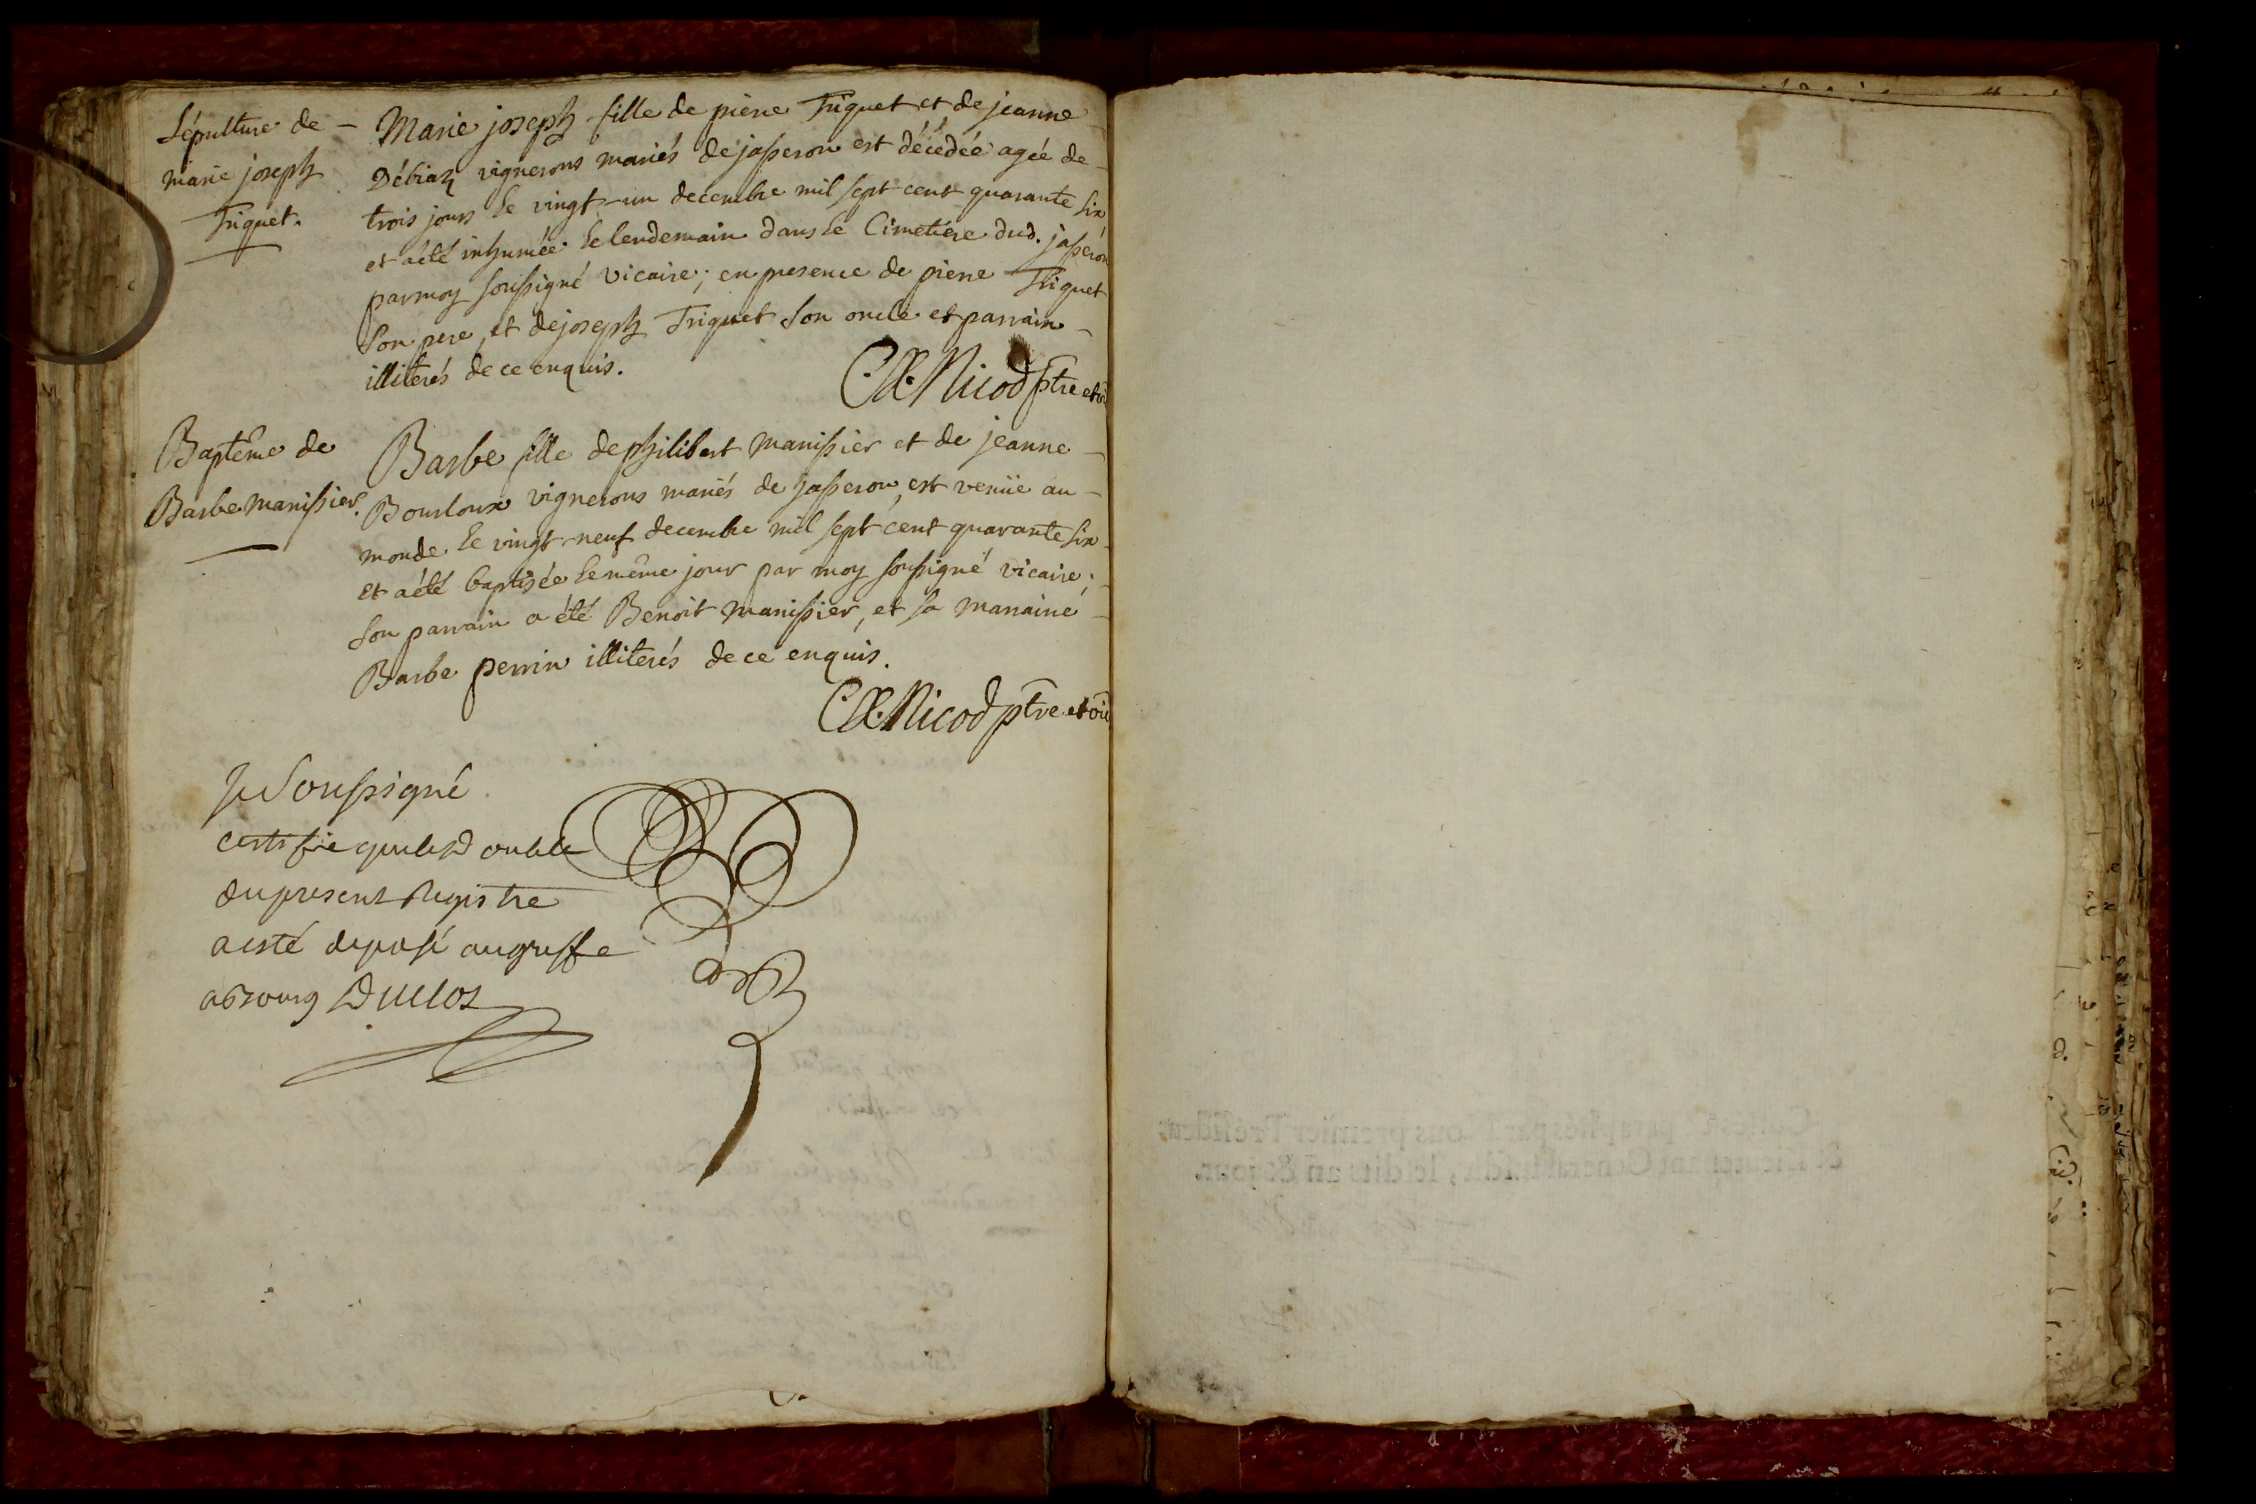 Sépulture de
marie joseph
Triquet.
Marie joseph fille de pierre Triquet et de jeanne
Débiaz vignerons mariés de jasseron est décédée agée de
trois jours le vingt-un decembre mil sept cent quarante six
et a été inhumée le lendemain dans le Cimetière dud. jasseron
par moy soussigné vicaire; en presence de pierre Triquet
son pere, et de joseph Triquet son oncle et parrain
illiterés de ce enquis.
Nicod ptre et
Baptême de
Barbe manissier.
Barbe fille de philibert manissier et de jeanne
Bourloux vignerons mariés de jasseron, est venüe au
monde le vingt-neuf decembre mil sept cent quarante six
et a été baptisée le même jour par moy soussigné vicaire;
son parrain a été Benoit manissier, et sa marraine
Barbe perrin illiterés de ce enquis.
Nicod ptre et
Je Soussigné
certifie que le double
du present Registre
a esté deposé au greffe
a Bourg Duclos
par Nous premier Président
& Lieutenant General susdit, lesdits an & jour.